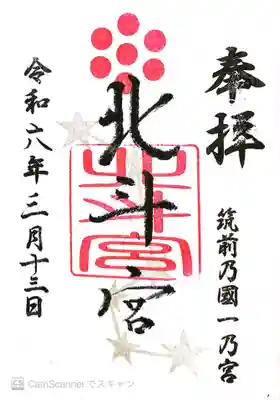 奉拝
筑前乃國一乃宮
北斗宮
北斗宮
令和六年三月十三日
CamScannerでスキャン